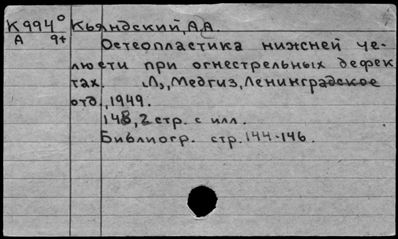 К994° Кьяндский, А.А.
А 9+
Остеопластика нижней че-
люсти при огнестрельных дефек
тах. Л., Медгиз, Ленинградское
отд., 1949.
148, 2 стр. с илл.
Библиогр. стр. 144-146.